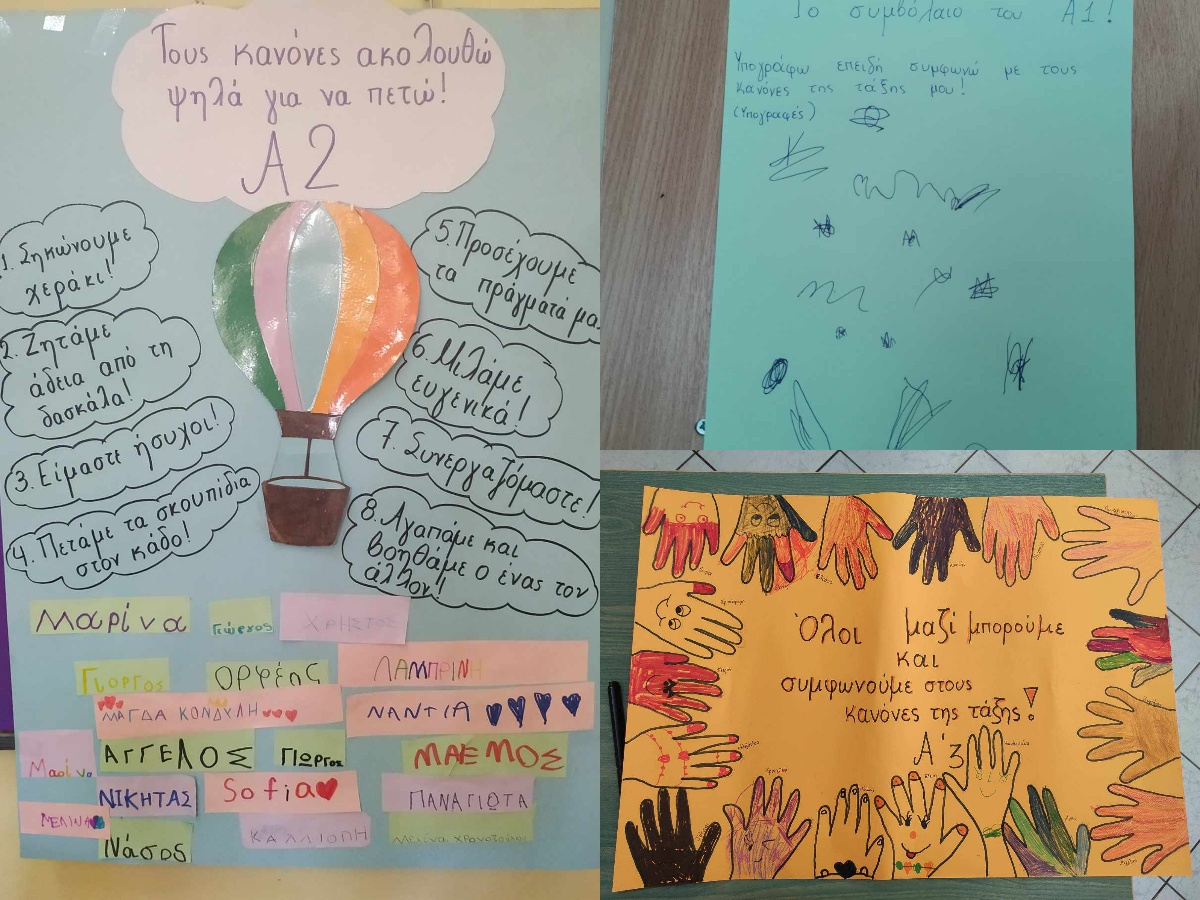 Τους κανόνες ακολουθώ
ψηλά για να πετώ!
Α2
1. Σηκώνουμε
χεράκι!
2. Ζητάμε
άδεια από τη
δασκάλα!
3. Είμαστε ήσυχοι!
4. Πετάμε τα σκουπίδια
στον κάδο!
5. Προσέχουμε
τα πράγματά μα
6. Μιλάμε
ευγενικά!
7. Συνεργαζόμαστε!
8. Αγαπάμε και
βοηθάμε ο ένας τον
άλλον!
Μαρίνα
Γιώργος
ΧΡΗΣΤΟΣ
Γιοργος
ΟΡΦΕΑς
ΛΑΜΠΡΙΝΗ
ΜΑΓΔΑ ΚΟΝΔΥΛΗ
ΝΑΝΤΙΑ
Μαρίνα
ΑΓΓΕΛΟΣ
Γιωργος
ΜΑΕΜΟΣ
ΝΙΚΗΤΑΣ
Sofia
ΠΑΝΑΓΙΩΤΑ
ΜΕΛΙΝΑ
ΚΑΛΛΙΟΠΗ
Νάσος
1ο συμβόλαιο του Α1!
Υπογράφω επειδή συμφωνώ με τους
κανόνες της τάξης μου!
(Υπογραφές)
Όλοι μαζί μπορούμε
και
συμφωνούμε στους
κανόνες της τάξης!
Α΄3